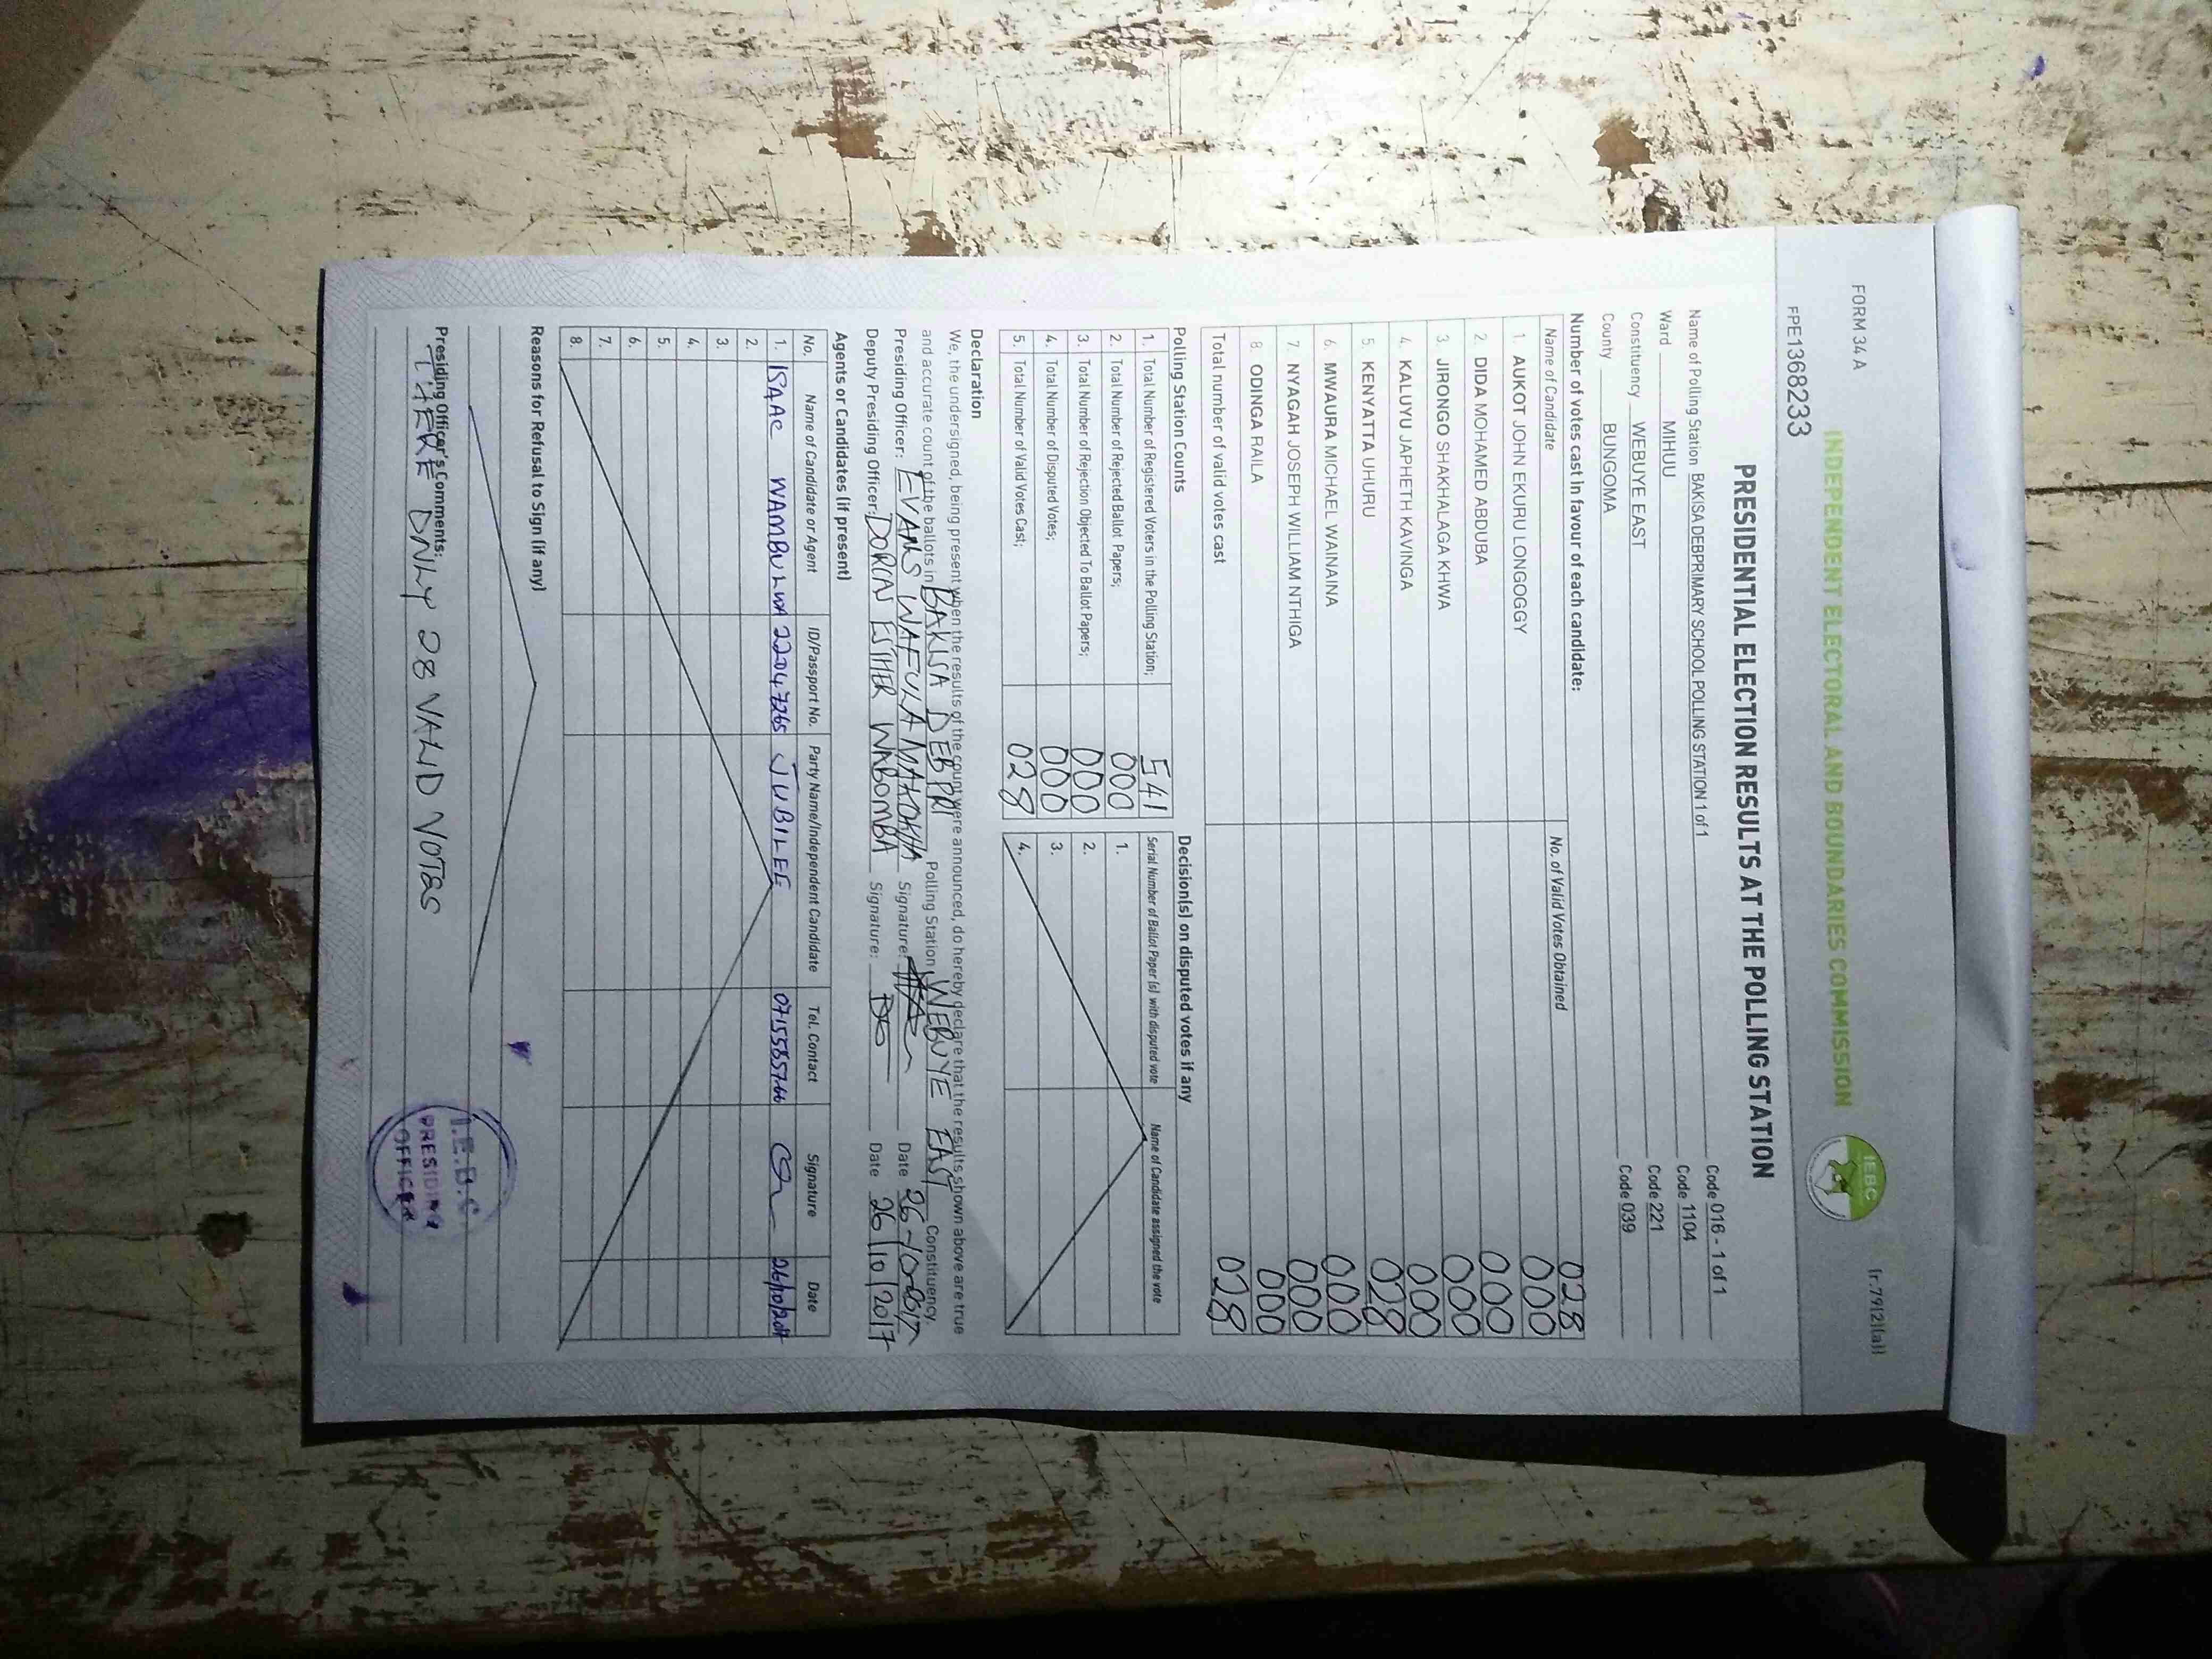 FORM 34 A
(r.79(2)(a))
INDEPENDENT ELECTORAL AND BOUNDARIES COMMISSION
IEBC
FPE1368233
PRESIDENTIAL ELECTION RESULTS AT THE POLLING STATION
Name of Polling Station BAKISA DEBPRIMARY SCHOOL POLLING STATION 1 of 1 Code 016 - 1 of 1
Ward MIHUU Code 1104
Constituency WEBUYE EAST Code 221
County BUNGOMA Code 039
Number of votes cast in favour of each candidate: 028
Name of Candidate No. of Valid Votes Obtained
1. AUKOT JOHN EKURU LONGOGGY 000
2. DIDA MOHAMED ABDUBA 000
3. JIRONGO SHAKHALAGA KHWA 000
4. KALUYU JAPHETH KAVINGA 000
5. KENYATTA UHURU 028
6. MWAURA MICHAEL WAINAINA 000
7. NYAGAH JOSEPH WILLIAM NTHIGA 000
8. ODINGA RAILA 000
Total number of valid votes cast 028
Polling Station Counts
1. Total Number of Registered Voters in the Polling Station; 541
2. Total Number of Rejected Ballot Papers; 000
3. Total Number of Rejection Objected To Ballot Papers; 000
4. Total Number of Disputed Votes; 000
5. Total Number of Valid Votes Cast; 028
Decision(s) on disputed votes if any
Serial Number of Ballot Paper (s) with disputed vote Name of Candidate assigned the vote
1.
2.
3.
4.
Declaration
We, the undersigned, being present when the results of the count were announced, do hereby declare that the results shown above are true
and accurate count of the ballots in BAKISA DEB PRI Polling Station WEBUYE EAST Constituency.
Presiding Officer: EVANS WAFULA MAKOKHA Signature: Date 26-10-2017
Deputy Presiding Officer: DORIN ESTHER WABOMBA Signature: Date 26/10/2017
Agents or Candidates (if present)
No. Name of Candidate or Agent ID/Passport No. Party Name/Independent Candidate Tel. Contact Signature Date
1. ISAAC WAMBULWA 22047265 JUBILEE 0715585766 26/10/2017
2.
3.
4.
5.
6.
7.
8.
Reasons for Refusal to Sign (if any)
Presiding Officer's Comments:
THERE ONLY 28 VALID VOTES
I.E.B.C
PRESIDING
OFFICER